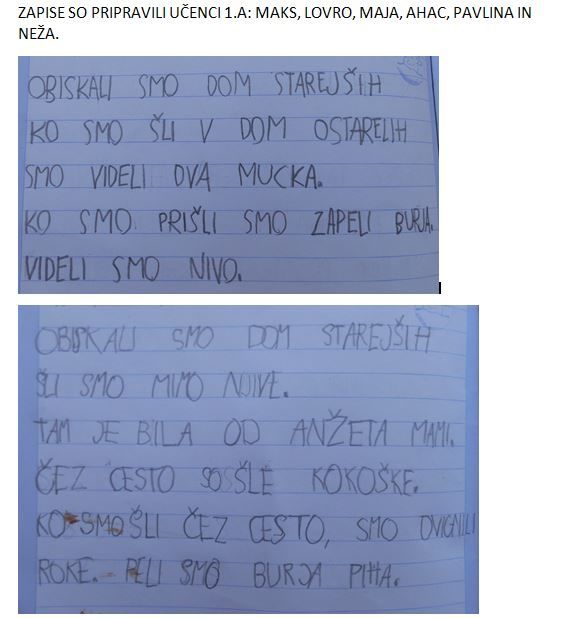 ZAPISE SO PRIPRAVILI UČENCI 1.A: MAKS, LOVRO, MAJA, AHAC, PAVLINA IN
NEŽA.
OBISKALI SMO DOM STAREJŠIH
KO SMO ŠLI V DOM OSTARELIH
SMO VIDELI DVA MUCKA.
KO SMO PRIŠLI SMO ZAPELI BURJA.
VIDELI SMO NIVO.
OBISKALI SMO DOM STAREJŠIH
ŠLI SMO MIMO NJIVE.
TAM JE BILA OD ANŽETA MAMI.
ČEZ CESTO SO ŠLE KOKOŠKE.
KO SMO ŠLI ČEZ CESTO, SMO DVIGNILI
ROKE. PELI SMO BURJA PIHA.